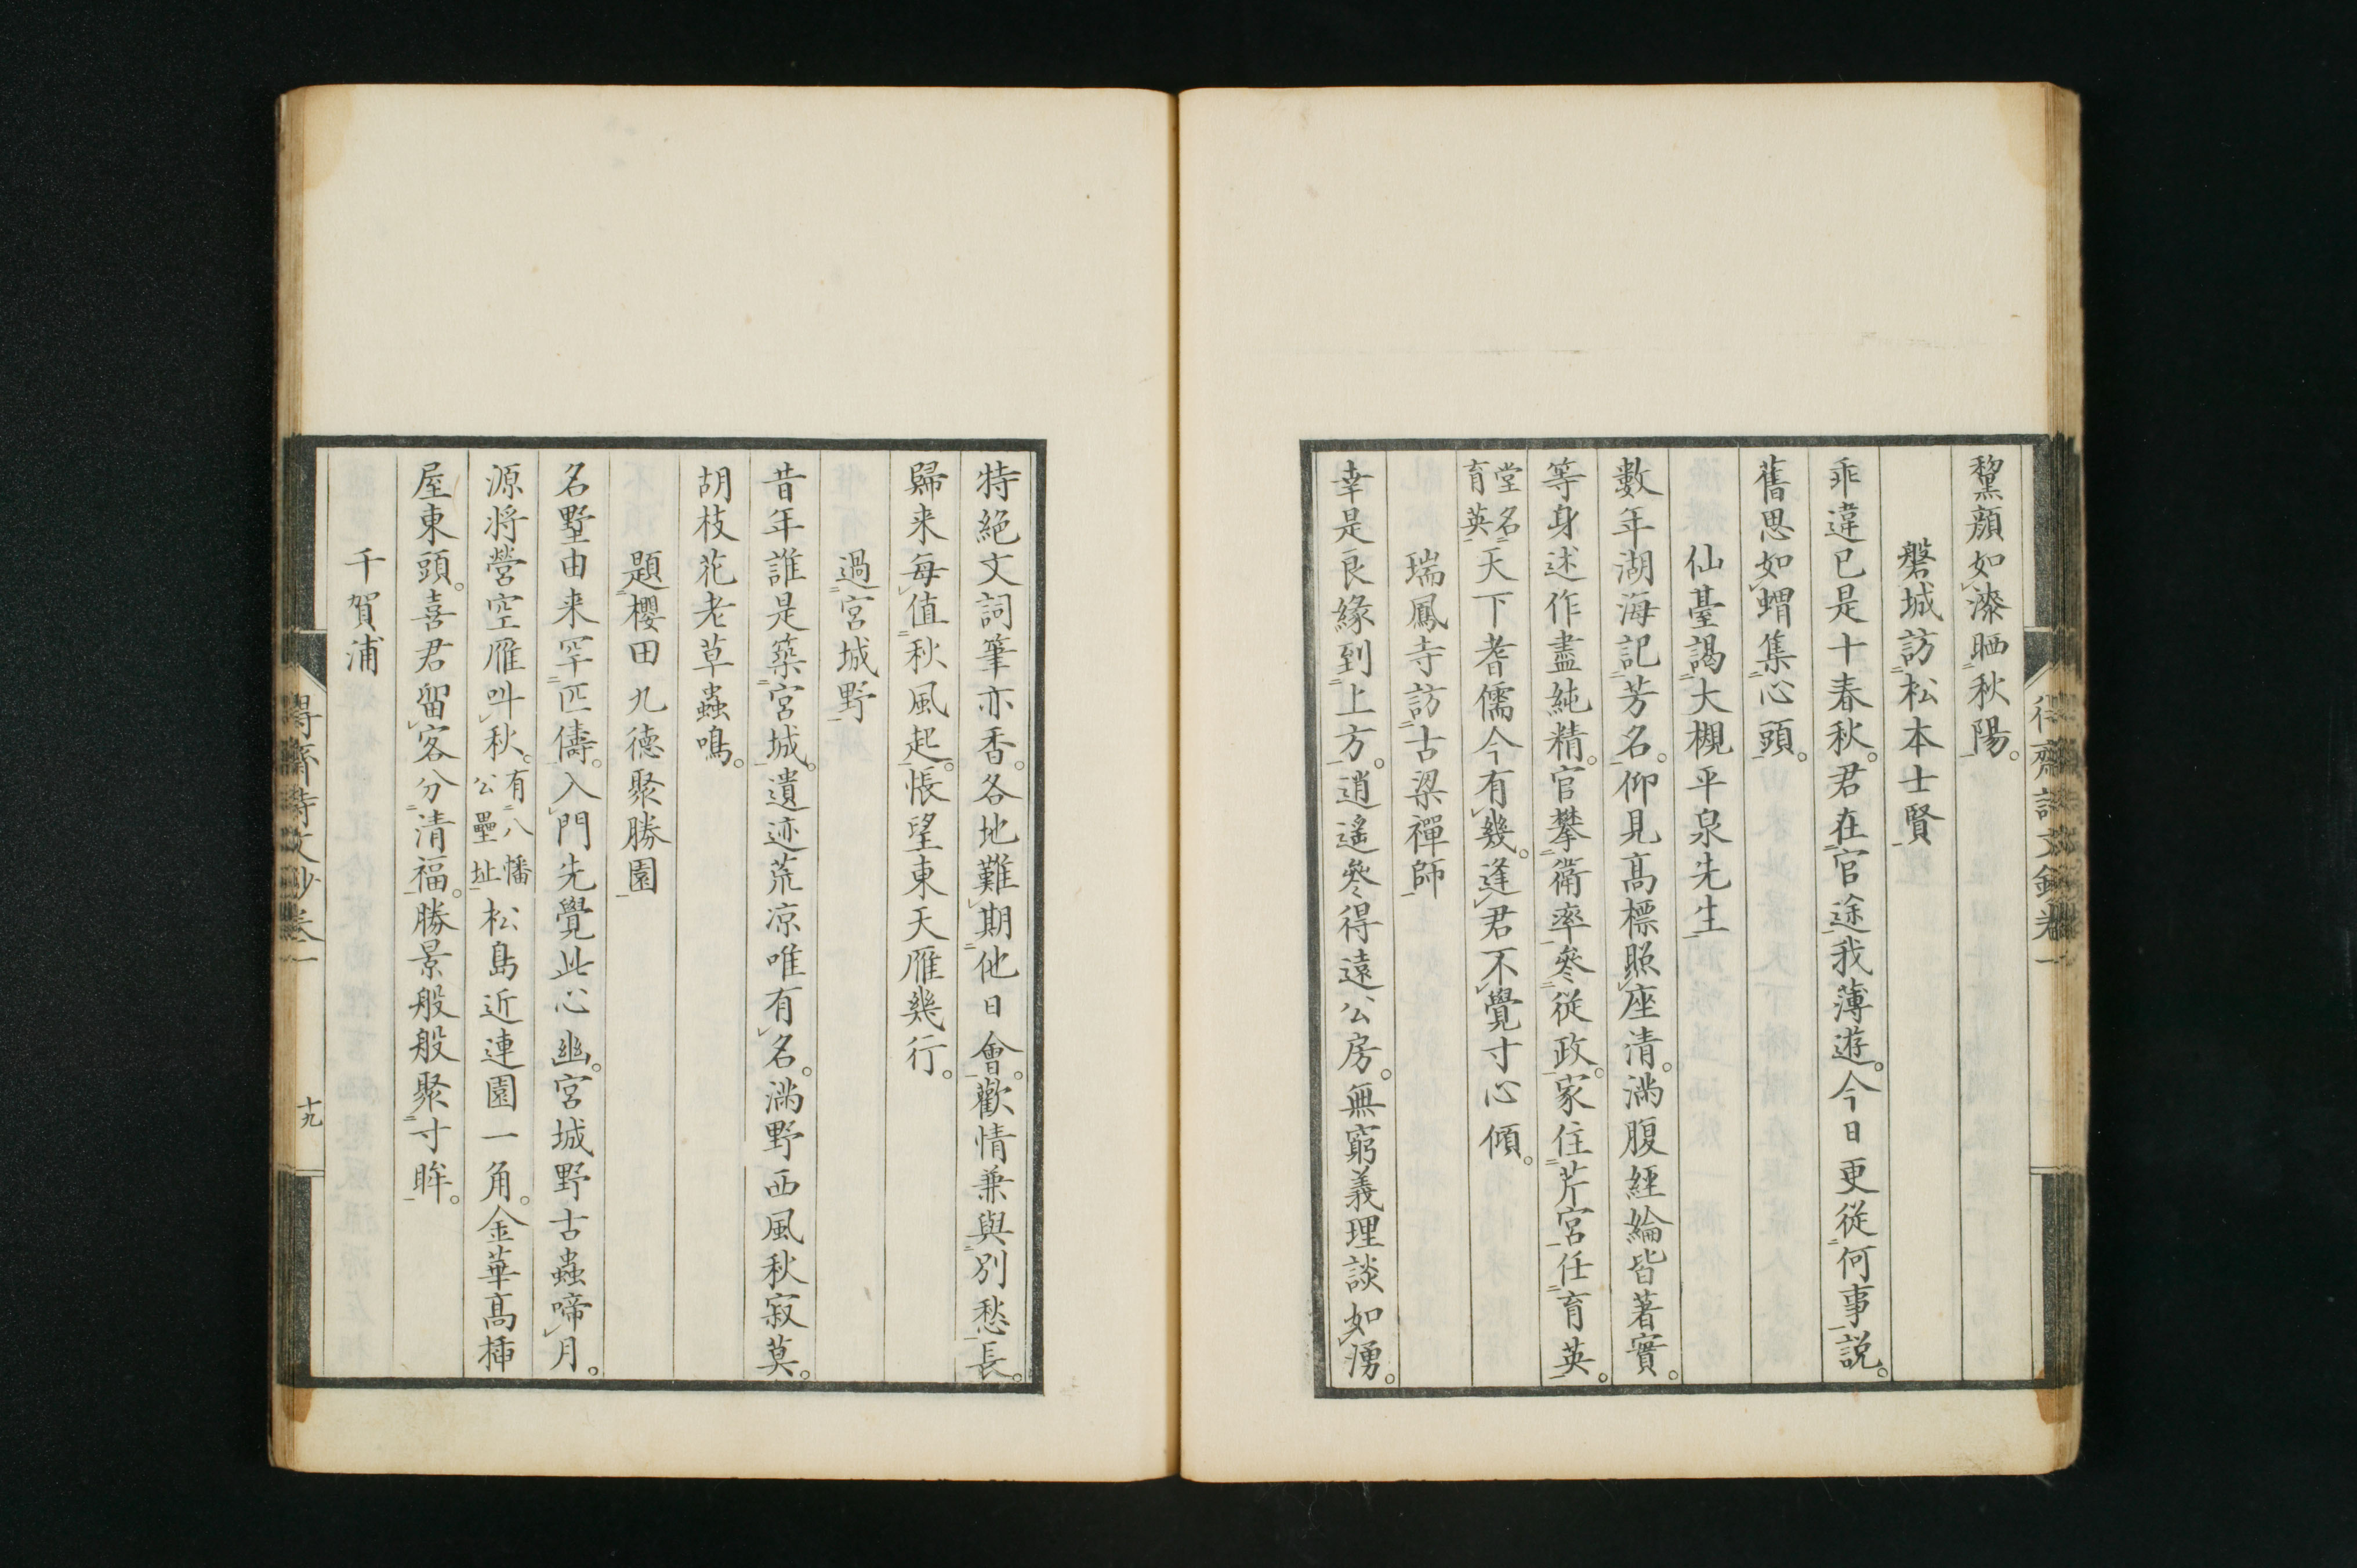 黧顏如漆晒秋陽。
磐城訪松本士賢
乖違已是十春秋。君在官途我薄遊。今日更從何事説。
舊思如蝟集心頭。
仙臺謁大槻平泉先生
數年湖海記芳名。仰見高標照座清。滿腹經綸皆著實。
等身述作盡純精。官攀衛率參從政。家住芹宮任育英。
堂名
育英
天下耆儒今有幾。逢君不覺寸心傾。
瑞鳳寺訪古梁禪師
幸是良緣到上方。逍遙參得遠公房。無窮義理談如湧。
特絶文詞筆亦香。各地難期他日會。歡情兼與別愁長。
歸来每値秋風起。悵望東天雁幾行。
過宮城野
昔年誰是築宮城。遺迹荒凉唯有名。滿野西風秋寂莫。
胡枝花老草蟲鳴。
題櫻田九德聚勝園
名墅由来罕匹儔。入門先覺此心幽。宮城野古蟲啼月。
源将營空雁叫秋。
有八幡
公壘址
松島近連園一角。金華高揷
屋東頭。喜君留客分清福。勝景般般聚寸眸。
千賀浦
得齋詩文鈔卷一
十九